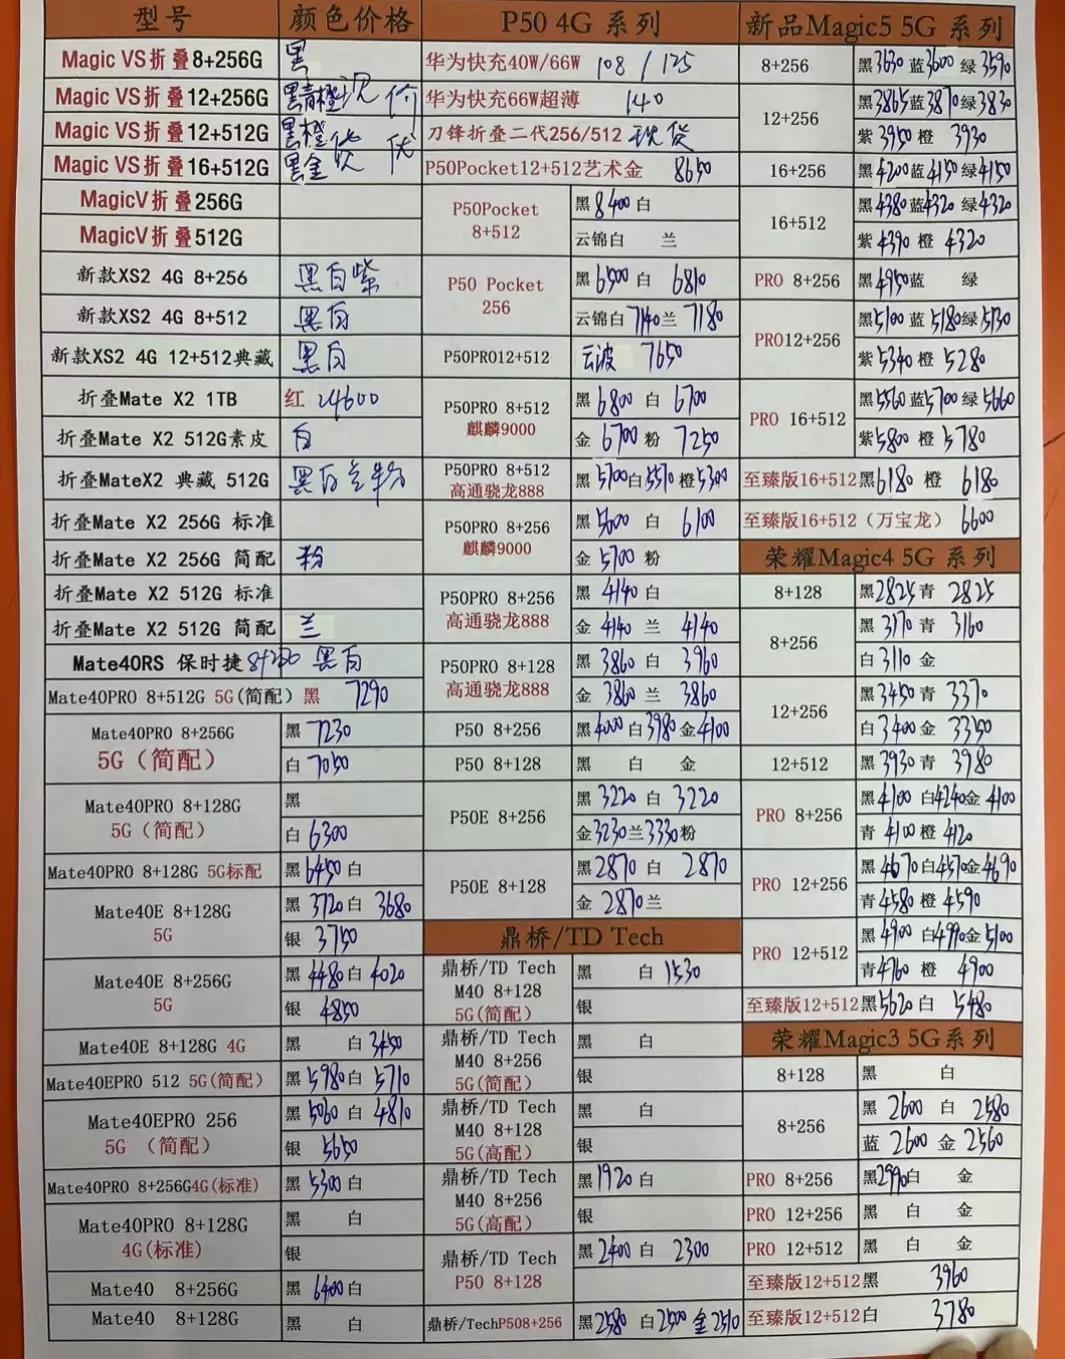 型号 颜色价格
Magic VS折叠8+256G 黑
Magic VS折叠12+256G 黑青橙现价
Magic VS折叠12+512G 黑橙优
Magic VS折叠16+512G 黑金
MagicV折叠256G
MagicV折叠512G
新款XS2 4G 8+256 黑白紫
新款XS2 4G 8+512 黑白
新款XS2 4G 12+512典藏 黑白
折叠Mate X2 1TB 红 24600
折叠Mate X2 512G素皮 白
折叠MateX2 典藏 512G 黑白兰
折叠Mate X2 256G 标准
折叠Mate X2 256G 简配 粉
折叠Mate X2 512G 标准
折叠Mate X2 512G 简配 兰
Mate40RS 保时捷 8+256 黑白
Mate40PRO 8+512G 5G(简配) 黑 7290
Mate40PRO 8+256G
5G（简配）
黑 7230
白 7050
Mate40PRO 8+128G
5G（简配）
黑
白 6300
Mate40PRO 8+128G 5G标配 黑6450白
Mate40E 8+128G
5G
黑 3720白 3680
银 3750
Mate40E 8+256G
5G
黑 4480白 4020
银 4850
Mate40E 8+128G 4G 黑 白3450
Mate40EPRO 512 5G(简配) 黑 5980白 5710
Mate40EPRO 256
5G （简配）
黑 5060 白 4810
银 5650
Mate40PRO 8+256G4G(标准) 黑 5300白
Mate40PRO 8+128G
4G(标准)
黑 白
银
Mate40 8+256G 黑 6400白
Mate40 8+128G 黑 白
P50 4G 系列
华为快充40W/66W 108 / 125
华为快充66W超薄 140
刀锋折叠二代256/512 现货
P50Pocket12+512艺术金 8650
P50Pocket
8+512
黑8400白
云锦白 兰
P50 Pocket
256
黑6500白 6810
云锦白7140兰7180
P50PRO12+512 云波 7650
P50PRO 8+512
麒麟9000
黑6800 白 6700
金 6700 粉 7250
P50PRO 8+512
高通骁龙888
黑 5700白5570橙5300
P50PRO 8+256
麒麟9000
黑 5600 白 6100
金 5700 粉
P50PRO 8+256
高通骁龙888
黑 4140白
金 4140 兰 4140
P50PRO 8+128
高通骁龙888
黑 3860 白 3960
金 3860 兰 3860
P50 8+256 黑4000白3980金4100
P50 8+128 黑 白 金
P50E 8+256
黑 3220 白 3220
金3230兰3330粉
P50E 8+128
黑2870 白 2870
金 2870兰
鼎桥/TD Tech
鼎桥/TD Tech
M40 8+128
5G(简配)
黑 白1530
银
鼎桥/TD Tech
M40 8+256
5G(简配)
黑 白
银
鼎桥/TD Tech
M40 8+128
5G(高配)
黑 白
银
鼎桥/TD Tech
M40 8+256
5G(高配)
黑1920白
银
鼎桥/TD Tech
P50 8+128
黑2400 白 2300
鼎桥/TechP508+256 黑2580 白2500 金2510
新品Magic5 5G 系列
8+256 黑3630蓝3600绿3590
12+256
黑3865蓝3870绿3830
紫3950橙 3930
16+256 黑4200蓝4150绿4150
16+512
黑4380蓝4320绿4320
紫4390 橙 4320
PRO 8+256 黑4950蓝 绿
PRO12+256
黑5100 蓝 5180绿5130
紫5340橙 5280
PRO 16+512
黑5560蓝5700绿5660
紫5800 橙 5780
至臻版16+512黑6180 橙 6180
至臻版16+512（万宝龙） 6600
荣耀Magic4 5G 系列
8+128 黑2825青 2825
8+256
黑 3170青 3160
白3110 金
12+256
黑3450青 3370
白3400金 3350
12+512 黑 3930青 3980
PRO 8+256
黑4100 白4240金4100
青 4100橙 4120
PRO 12+256
黑4670白4570金4690
青4580橙 4590
PRO 12+512
黑4900 白4990金5100
青4760橙 4900
至臻版12+512黑5620白 5480
荣耀Magic3 5G系列
8+128 黑 白
8+256
黑 2600 白 2580
蓝 2600 金 2560
PRO 8+256 黑2990白 金
PRO 12+256 黑 白 金
PRO 12+512 黑 白 金
至臻版12+512黑 3960
至臻版12+512白 3780